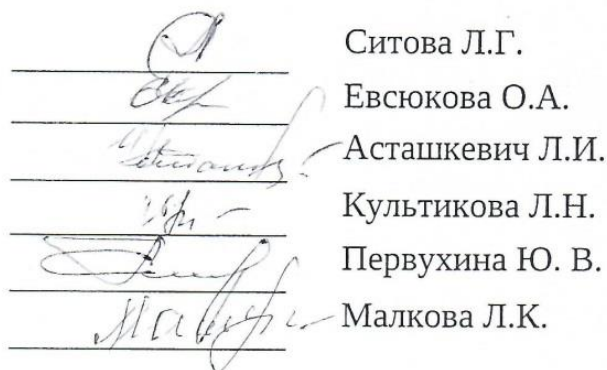 Ситова Л.Г.
Евсюкова О.А.
Асташкевич Л.И.
Культикова Л.Н.
Первухина Ю. В.
Малкова Л.К.